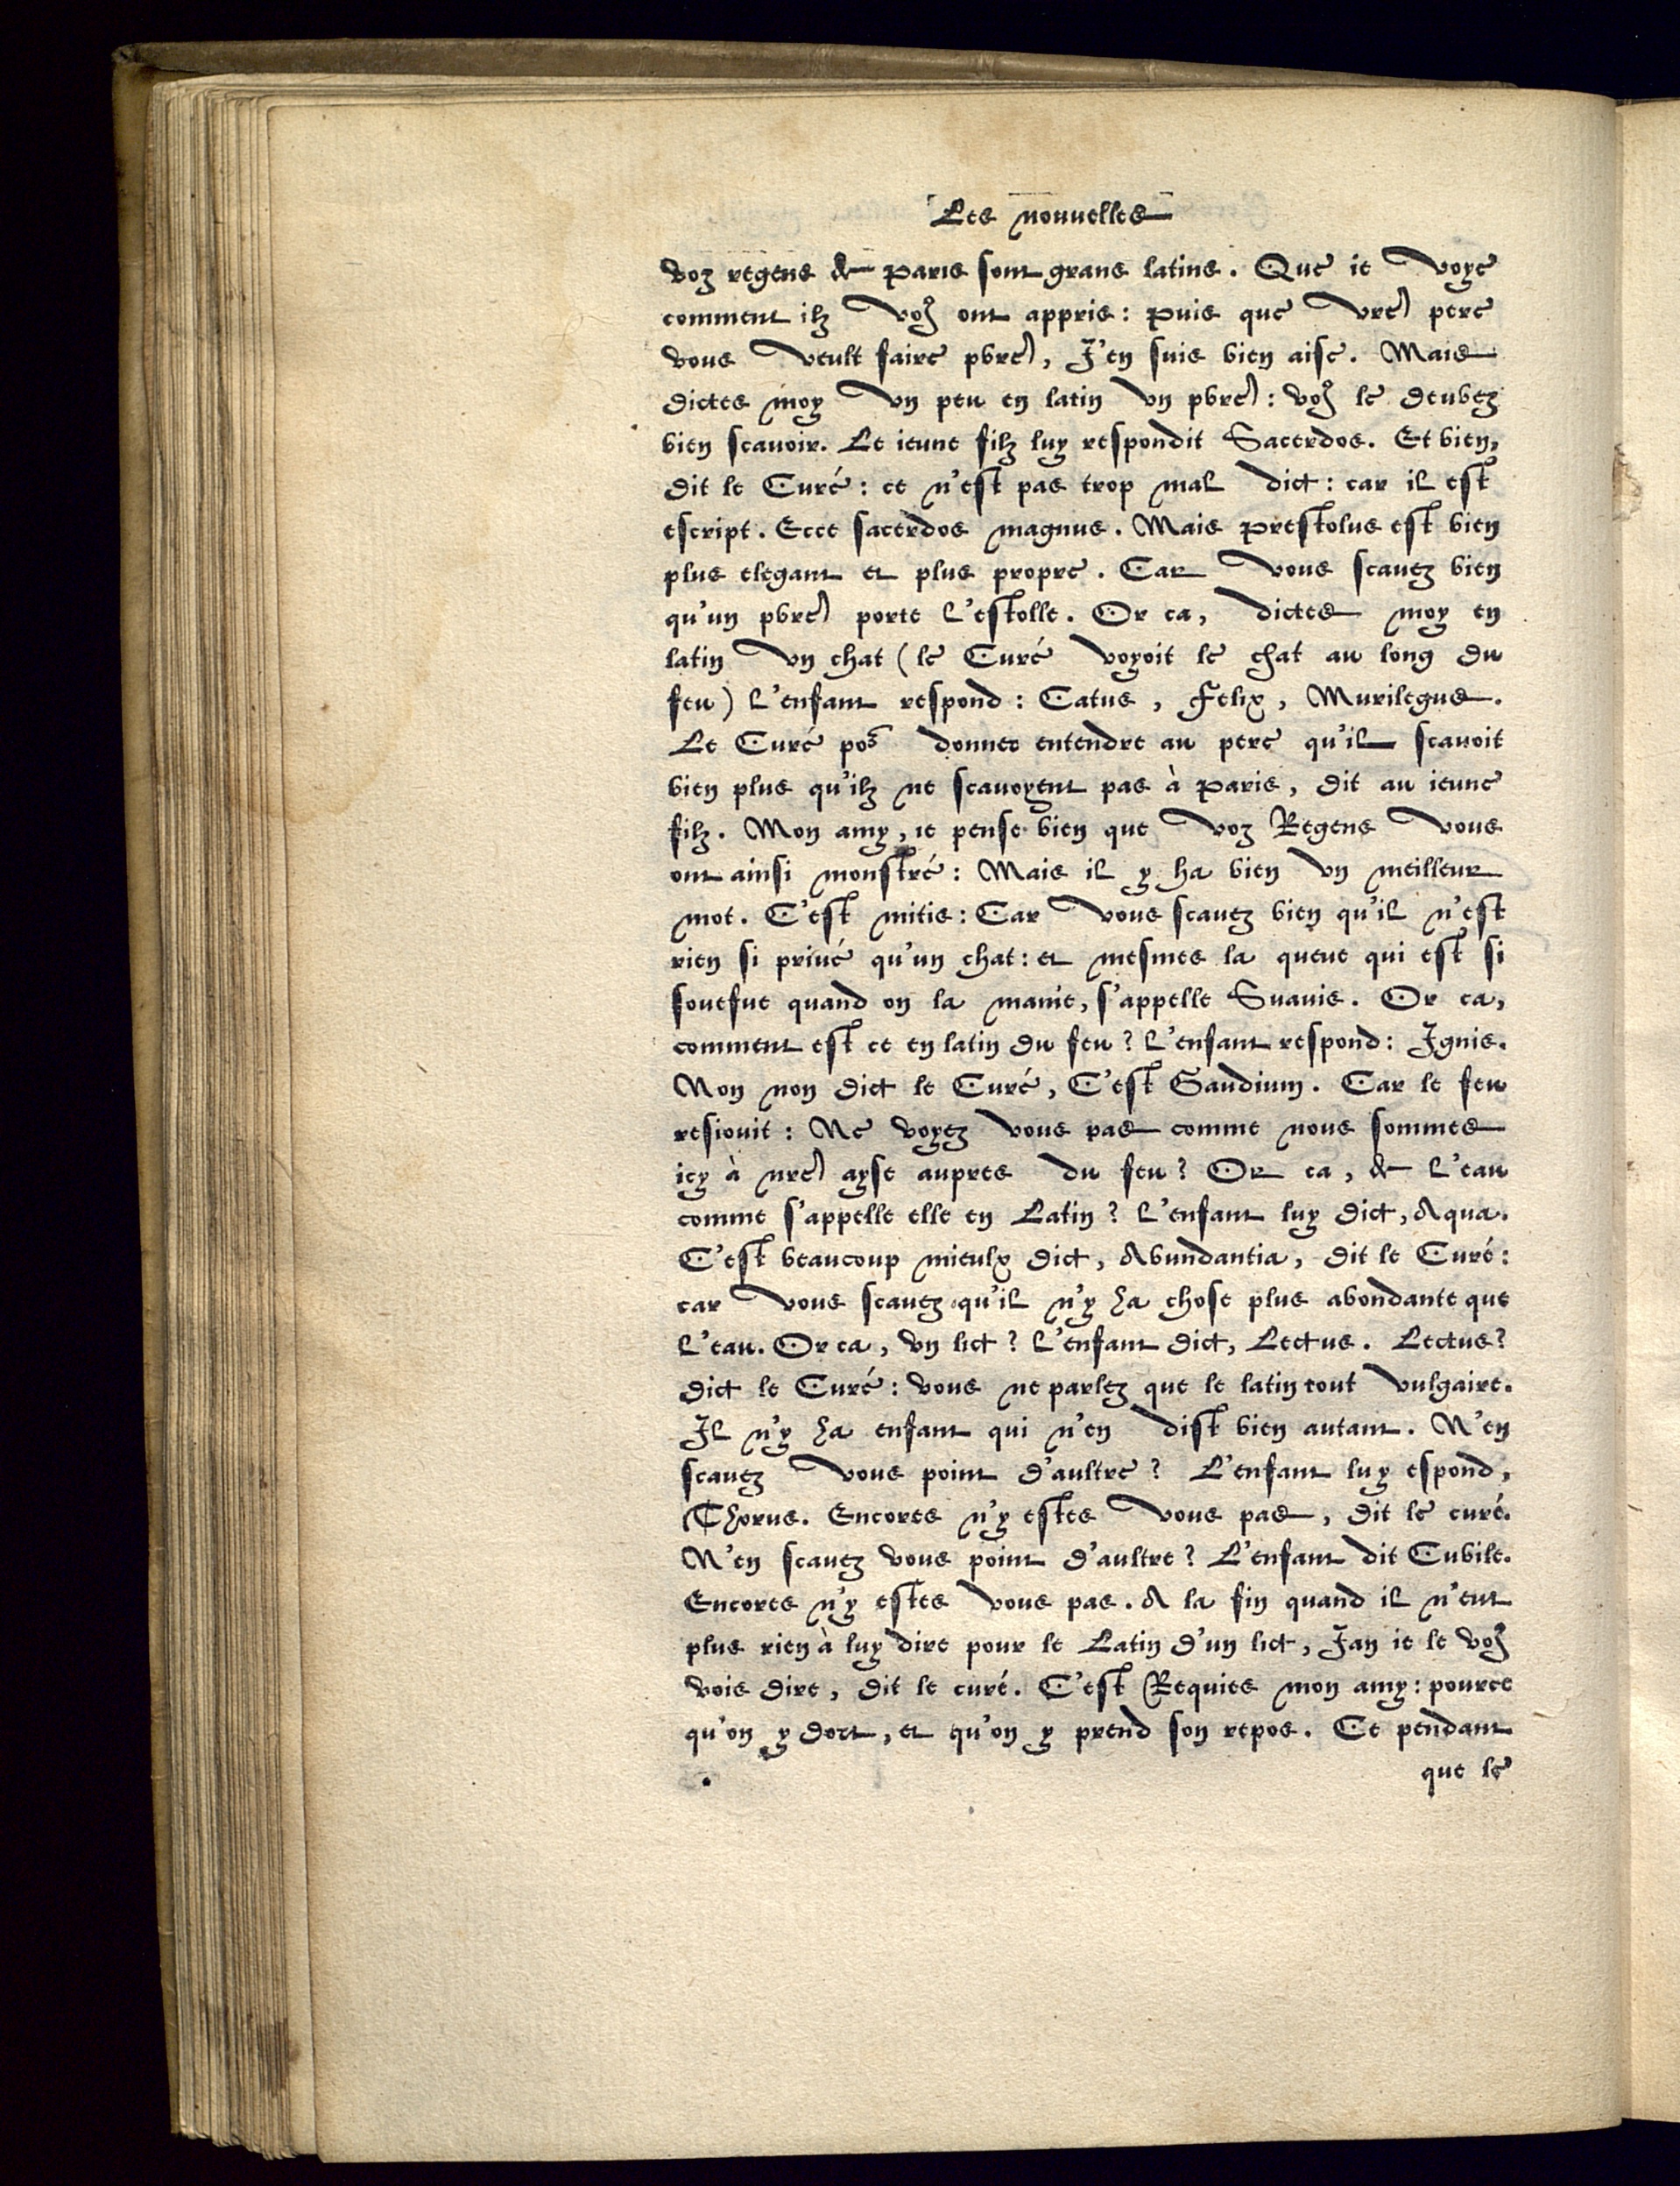 Les nouuelles
voz regens de Paris sont grans latins. Que ie voye
comment ilz vo⁹ ont appris: Puis que vr̃e pere
vous veult faire pbr̃e, J'en suis bien aise. Mais
dictes moy vn peu en latin vn pbr̃e: vo⁹ le deubez
bien scauoir. Le ieune filz luy respondit Sacerdos. Et bien,
dit le Curé: ce n'est pas trop mal dict: car il est
escript. Ecce sacerdos magnus. Mais Prestolus est bien
plus elegant et plus propre. Car vous scauez bien
qu'un pbr̃e porte l'estolle. Or ca, dictes moy en
latin vn chat (le Curé voyoit le chat au long du
feu) l'enfant respond: Catus, Felix, Murilegus.
Le Curé po᷑ donner entendre au pere qu'il scauoit
bien plus qu'ilz ne scauoyent pas à Paris, dit au ieune
filz. Mon amy, ie pense bien que voz Regens vous
ont ainsi monstré: Mais il y ha bien vn meilleur
mot. C'est mitis: Car vous scauez bien qu'il n'est
rien si priué qu'un chat: et mesmes la queue qui est si
souefue quand on la manie, s'appelle Suauis. Or ca,
comment est ce en latin du feu? l'enfant respond: Ignis.
Non non dict le Curé, C'est Gaudium. Car le feu
resiouit: Ne voyez vous pas comme nous sommes
icy à nr̃e ayse aupres du feu? Or ca, de l'eau
comme s'appelle elle en Latin? l'enfant luy dict, Aqua.
C'est beaucoup mieulx dict, Abundantia, dit le Curé:
car vous scauez qu'il n'y ha chose plus abondante que
l'eau. Or ca, vn lict? l'enfant dict, Lectus. Lectus?
dict le Curé: vous ne parlez que le latin tout vulgaire.
Il n'y ha enfant qui n'en dist bien autant. N'en
scauez vous point d'aultre? L'enfant luy espond,
Thorus. Encores n'y estes vous pas, dit le curé.
N'en scauez vous point d'aultre? L'enfant dit Cubile.
Encores n'y estes vous pas. A la fin quand il n'eut
plus rien à luy dire pour le Latin d'un lict, Jan ie le vo⁹
vois dire, dit le curé. C'est Requies mon amy: pource
qu'on y dort, et qu'on y prend son repos. Ce pendant
que le